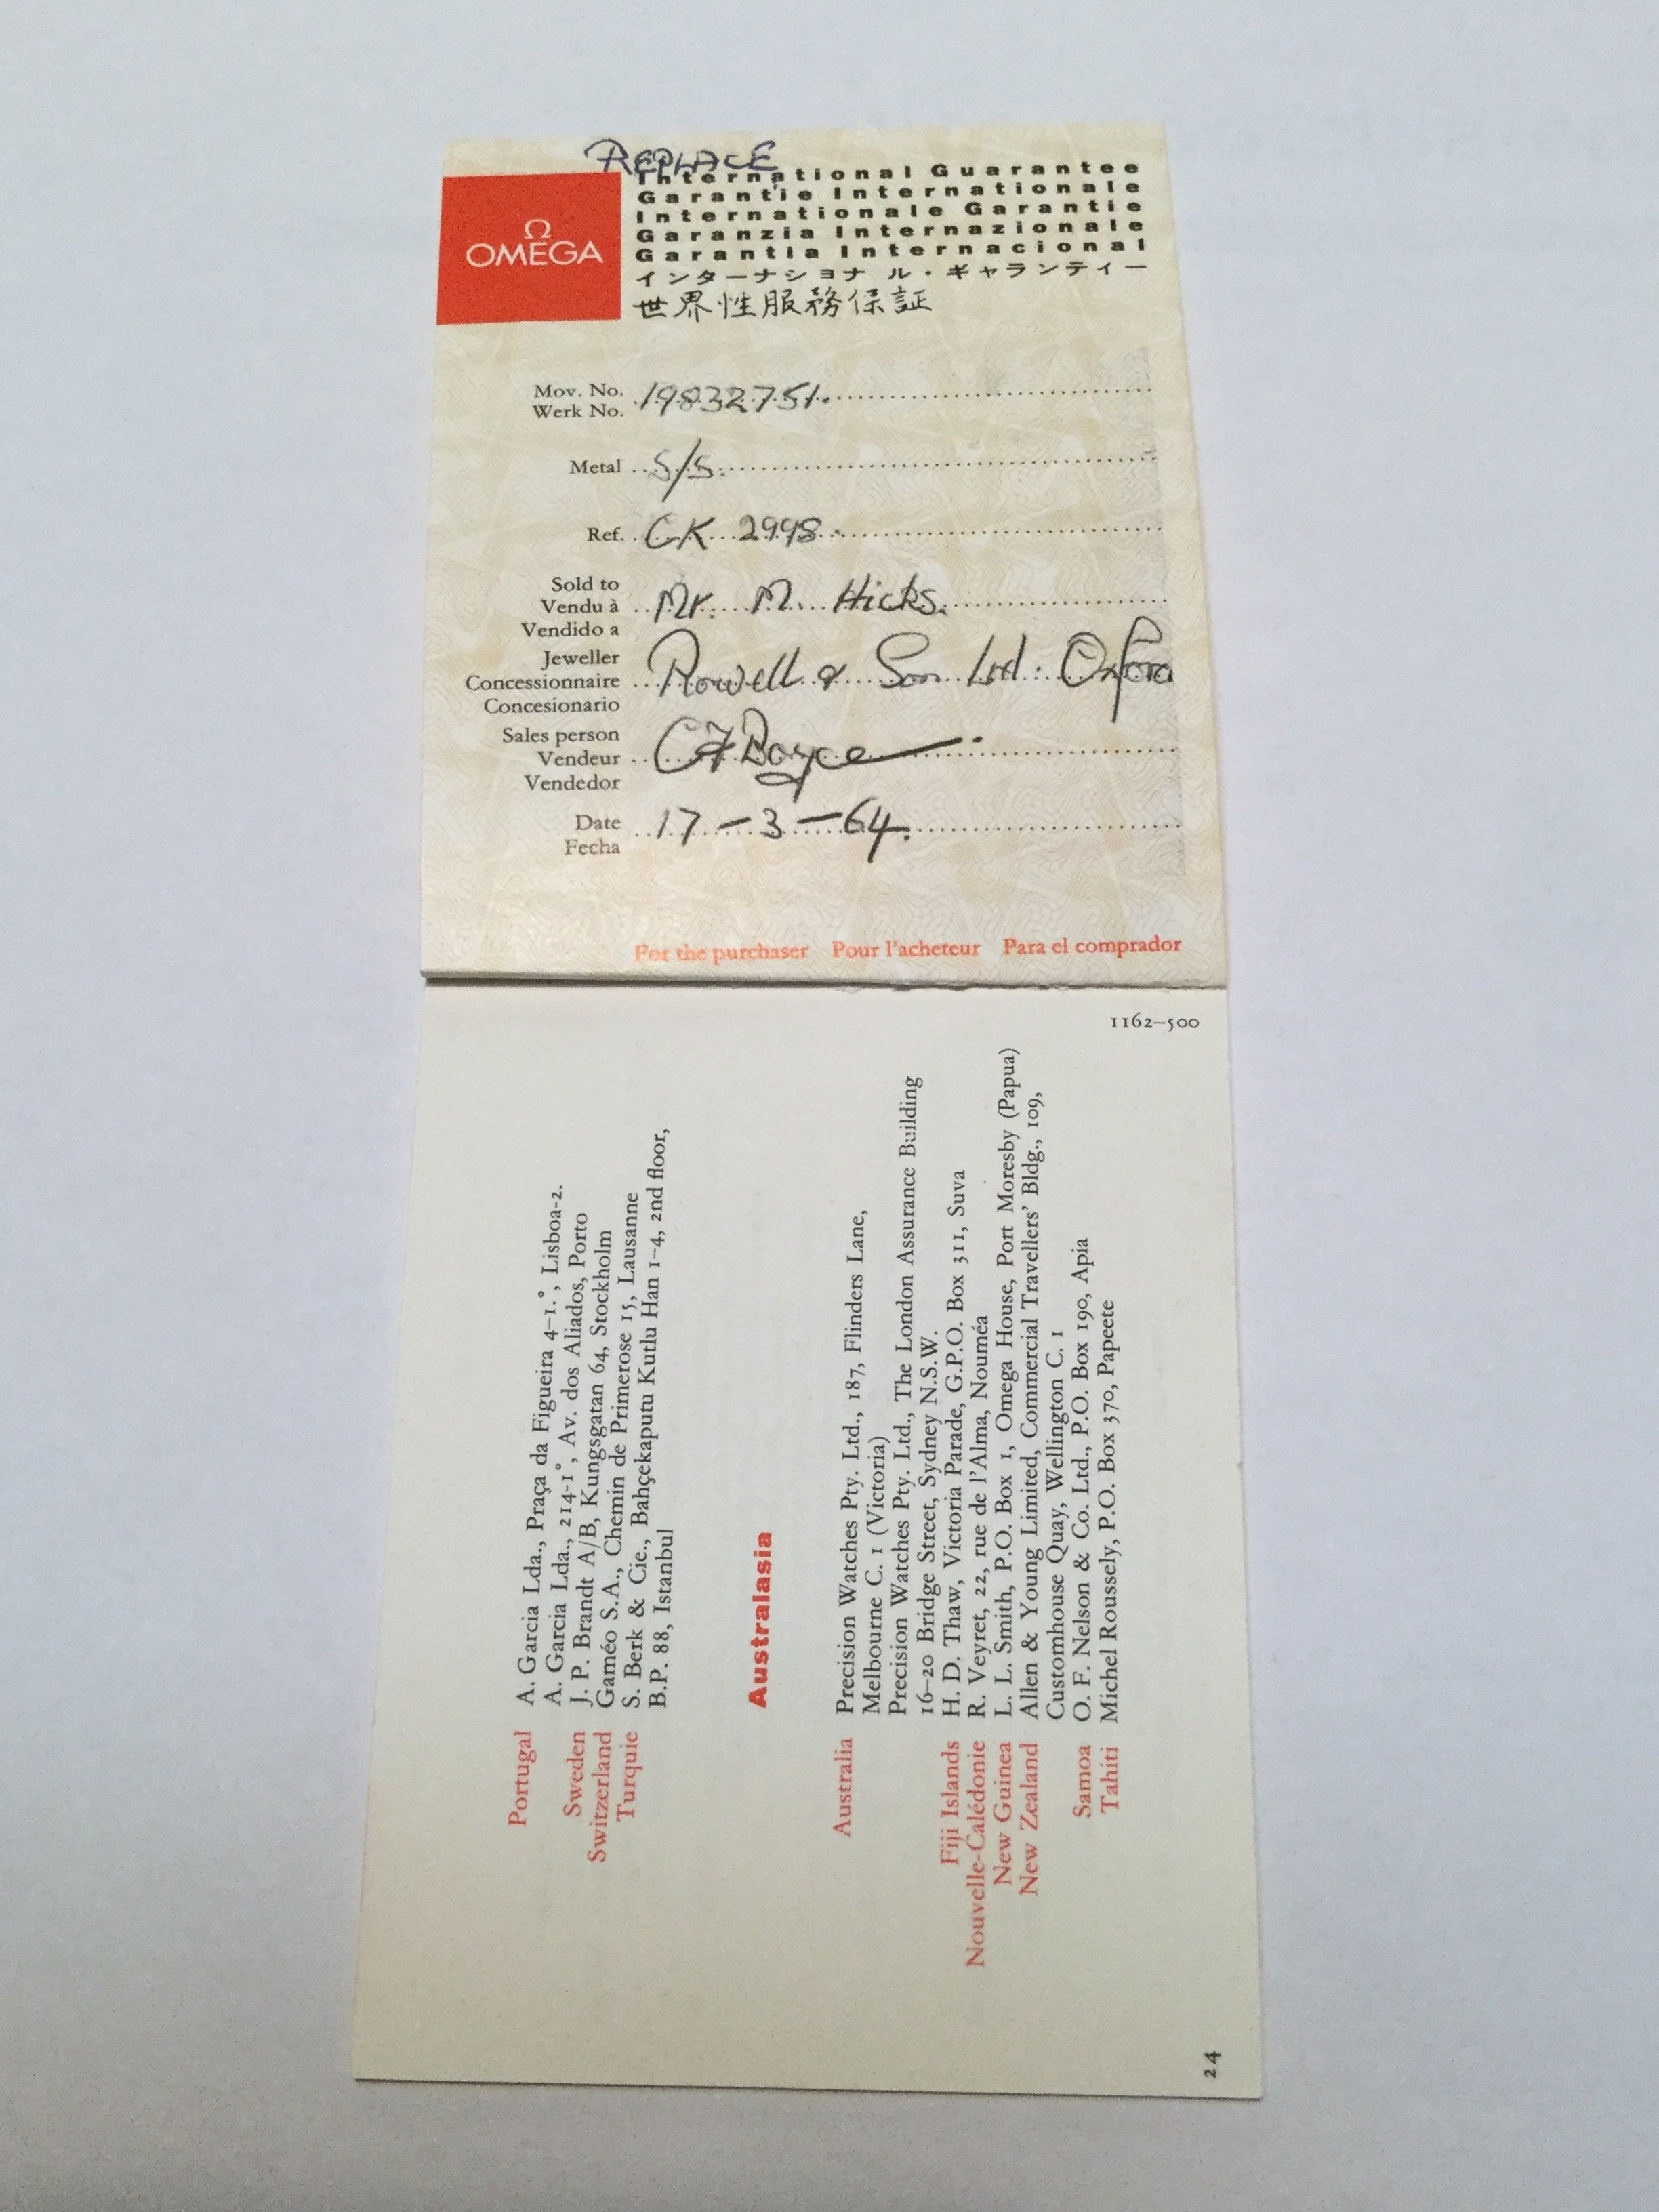 REPLACE
Ω
OMEGA
International Guarantee
Garantie Internationale
Internationale Garantie
Garanzia Internazionale
Garantia Internacional
インターナショナル・ギャランティー
世界性服務保証
Mov. No.
Werk No.
19832751.
Metal S/S.
Ref. CK 2998.
Sold to
Vendu à
Vendido a
Mr. M. Hicks.
Jeweller
Concessionnaire
Concesionario
Rowell & Son Ltd. Oxford
Sales person
Vendeur
Vendedor
CF Boyce
Date
Fecha
17-3-64.
For the purchaser Pour l'acheteur Para el comprador
1162–500
Portugal A. Garcia Lda., Praça da Figueira 4–1.°, Lisboa-2.
A. Garcia Lda., 214-1°, Av. dos Aliados, Porto
Sweden J. P. Brandt A/B, Kungsgatan 64, Stockholm
Switzerland Gaméo S.A., Chemin de Primerose 15, Lausanne
Turquie S. Berk & Cie., Bahçekaputu Kutlu Han 1–4, 2nd floor,
B.P. 88, Istanbul
Australasia
Australia Precision Watches Pty. Ltd., 187, Flinders Lane,
Melbourne C. 1 (Victoria)
Precision Watches Pty. Ltd., The London Assurance Building
16–20 Bridge Street, Sydney N.S.W.
Fiji Islands H. D. Thaw, Victoria Parade, G.P.O. Box 311, Suva
Nouvelle-Calédonie R. Veyret, 22, rue de l'Alma, Nouméa
New Guinea L. L. Smith, P.O. Box 1, Omega House, Port Moresby (Papua)
New Zealand Allen & Young Limited, Commercial Travellers' Bldg., 109,
Customhouse Quay, Wellington C. 1
Samoa O. F. Nelson & Co. Ltd., P.O. Box 190, Apia
Tahiti Michel Roussely, P.O. Box 370, Papeete
24